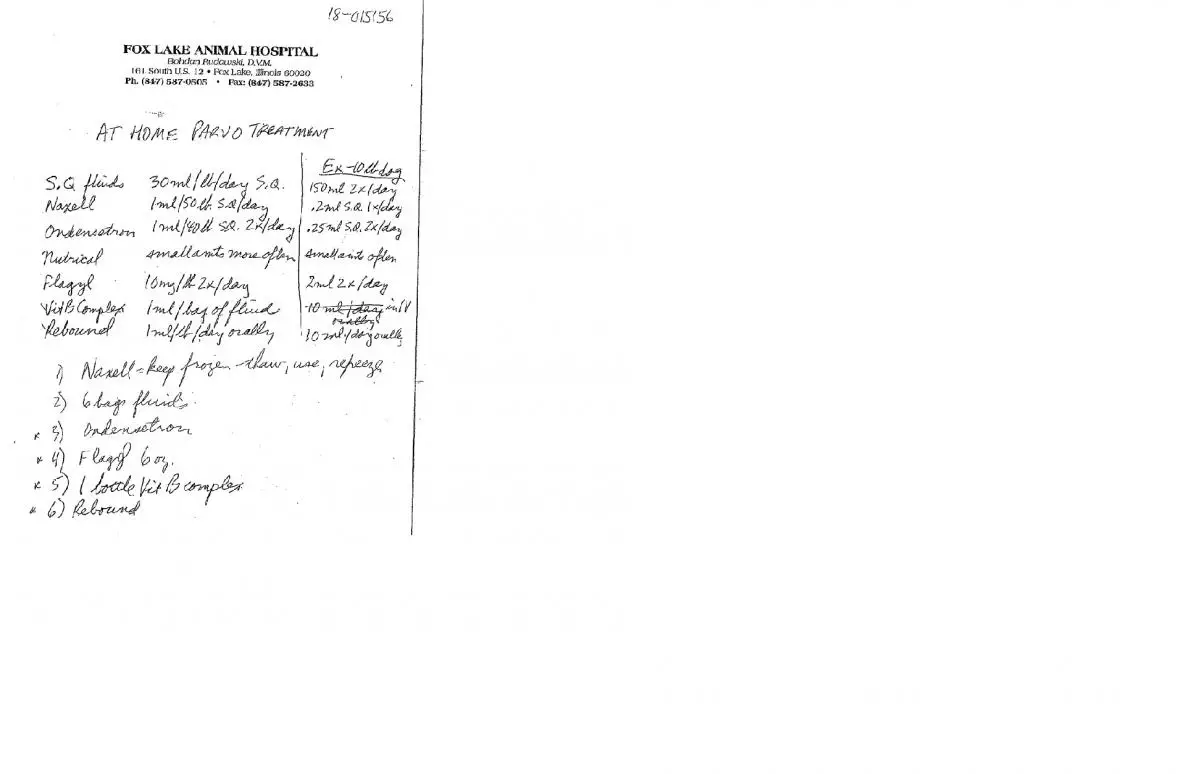 18-015156
FOX LAKE ANIMAL HOSPITAL
Bohdan Rudawski, D.V.M.
161 South U.S. 12 • Fox Lake, Illinois 60020
Ph. (847) 587-0505 • Fax: (847) 587-2633
AT HOME PARVO TREATMENT
Ex-10 lb dog
S.Q fluids 30ml/lb/day S.Q. 150ml 2x/day
Naxell 1ml/50 lb. S.Q/day .2ml S.Q. 1x/day
Ondensetron 1ml/40 lb SQ. 2x/day .25ml S.Q. 2x/day
Nutrical small amts more often small amts often
Flagyl 10mg/lb 2x/day 2ml 2x/day
Vit B Complex 1ml/bag of fluid 10 ml/day in IV
orally
Rebound 1ml/lb/day orally 10ml/day orally
1) Naxell - keep frozen - thaw, use, refreeze
2) 6 bags fluids
* 3) Ondensetron
* 4) Flagyl 6 oz.
* 5) 1 bottle Vit B complex
* 6) Rebound